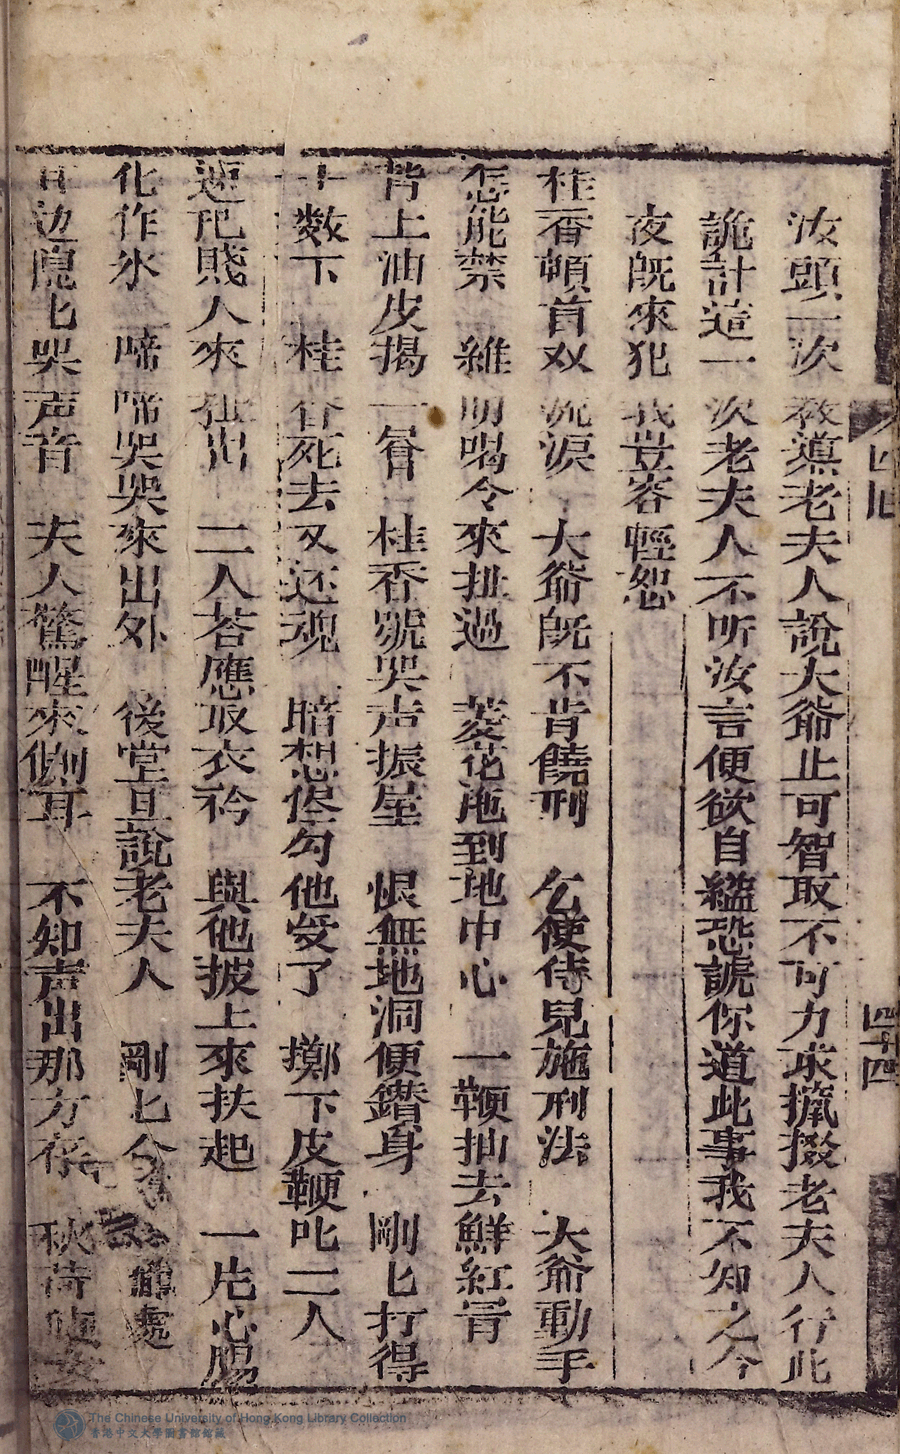 四十四
汝頭一次教導老夫人說大爺止可智取不可力求攛掇老夫人行此
詭計這一次老夫人不听汝言便欲自縊恐諕你道此事我不知之今
夜既來犯我豈容輕恕
桂香頓首双流淚 大爺既不肯饒刑 乞使侍兒施刑法 大爺動手
怎能禁 維明喝令來扯過 菱花拖到地中心 一鞭抽去鮮紅冐
背上油皮揭一層 桂香號哭声振屋 恨無地洞便鑚身 剛匕打得
十数下 桂香死去又还魂 暗想侭勾他受了 擲下皮鞭叱二人
速把賤人來扯出 二人荅應取衣衿 與他披上來扶起 一片心腸
化作氷 啼啼哭哭來出外 後堂且說老夫人 剛匕 處
耳边隐匕哭声音 夫人驚醒來側耳 不知声出那方存 秋荷 女
The Chinese University of Hong Kong Library Collection
香港中文大學圖書館館藏